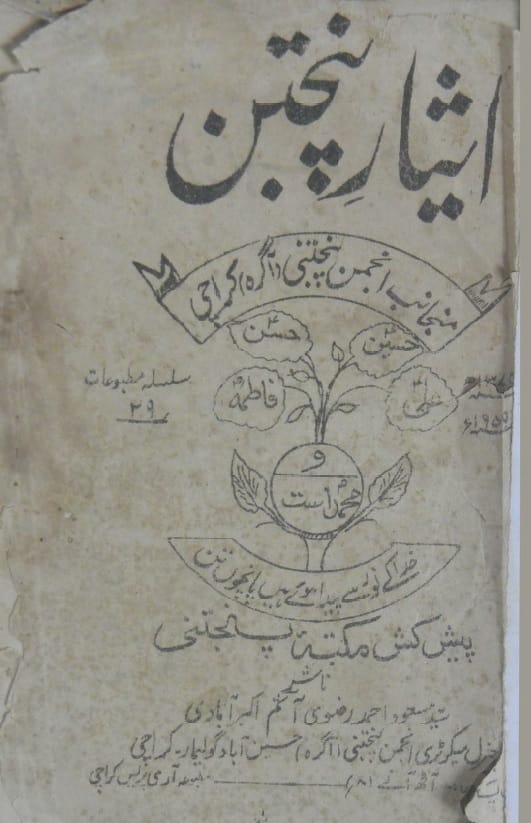 ایثارِ پنجتن
منجانب انجمن پنجتنی (آگرہ) کراچی
حسنؑ
حسینؑ
فاطمہؑ
علیؑ
سلسلہ مطبوعات
۲۹
۱۹۵۹ء
و
محمدؐ است
خدا کے نور سے پیدا ہوئے ہیں پانچوں تن
پیش کش مکتبۂ پنجتنی
ناشر
سید مسعود احمد رضوی آثم اکبرآبادی
جنرل سیکرٹری انجمن پنجتنی (آگرہ) حسین آباد گولیمار۔ کراچی
آٹھ آنے (۸ر) آرمی پریس کراچی